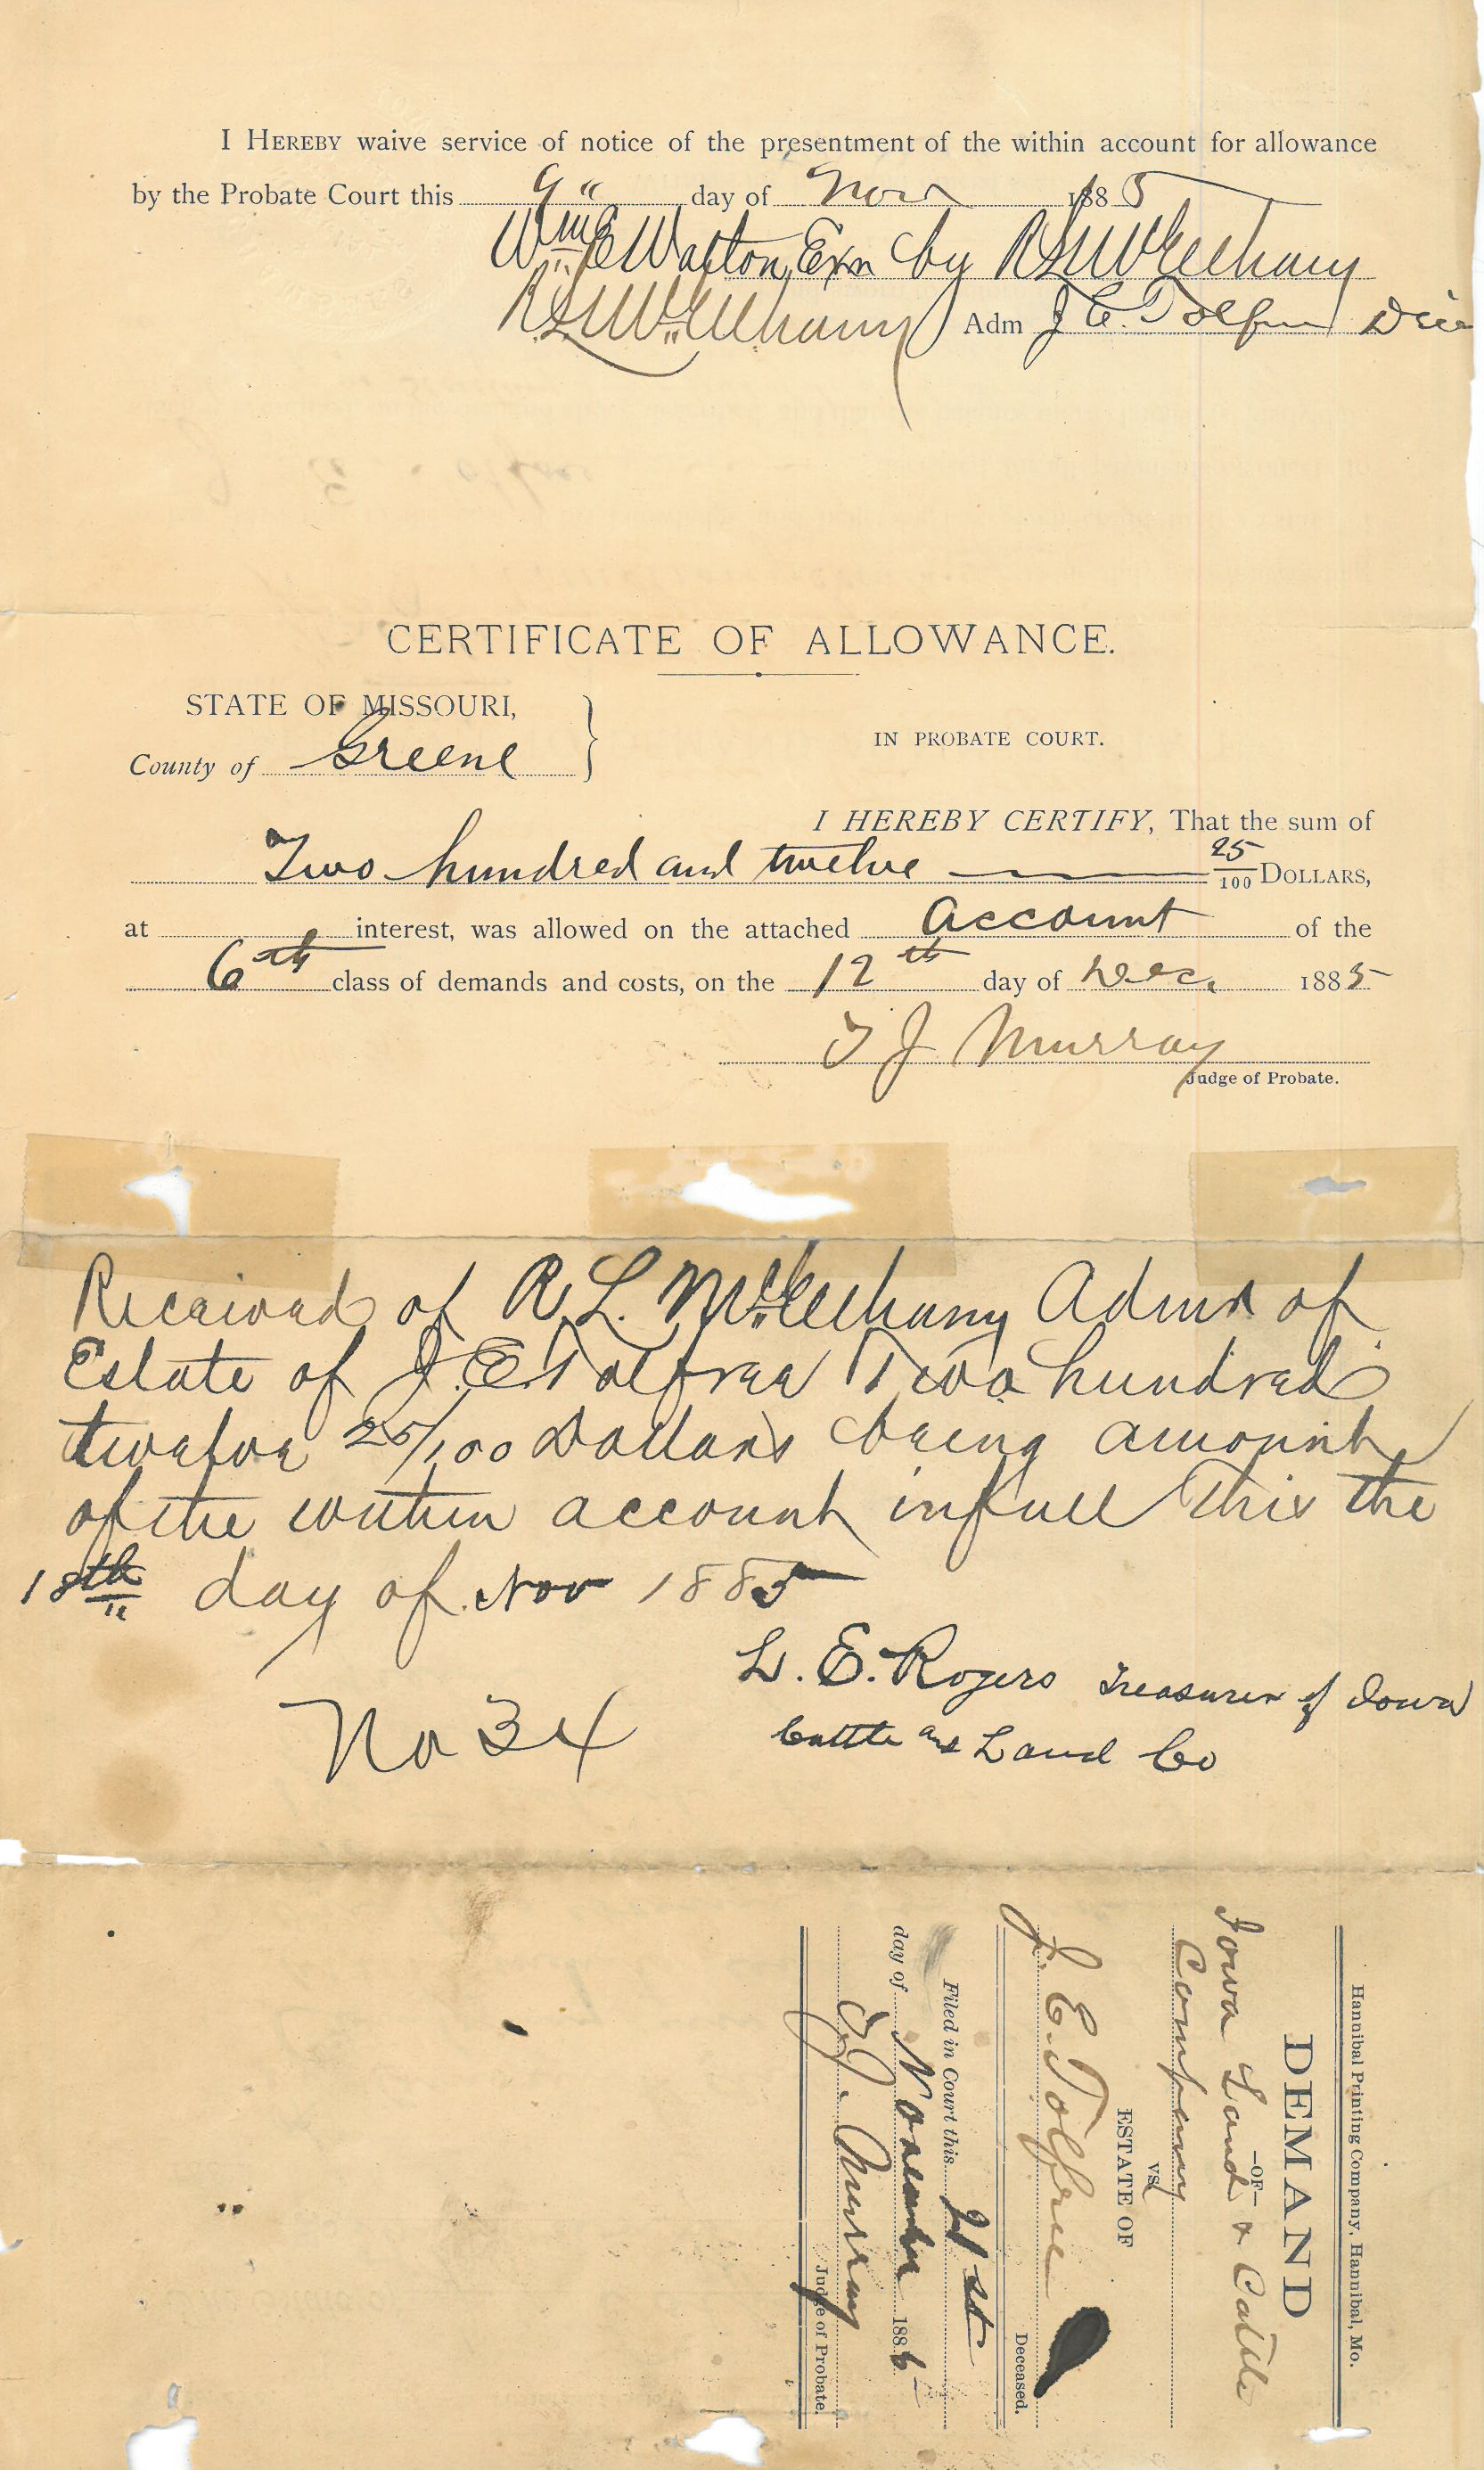 I HEREBY waive service of notice of the presentment of the within account for allowance
by the Probate Court this 9" day of Nov 1885
Wm E Walton Exr by R L McElhany
R L McElhany Adm J. E. Tolfree
CERTIFICATE OF ALLOWANCE.
STATE OF MISSOURI,
County of Greene
IN PROBATE COURT.
I HEREBY CERTIFY, That the sum of
Two hundred and twelve 25/100 DOLLARS,
at interest, was allowed on the attached account of the
6th class of demands and costs, on the 12th day of Dec. 1885
T J Murray
Judge of Probate.
Received of R. L. McElhany Admr of
Estate of J. E. Tolfree Two hundred
twelve 25/100 Dollars being amount
of the within account in full This the
18th day of Nov 1885
L. E. Rogers Treasurer of Iowa
Cattle and Land Co
No 34
Hannibal Printing Company, Hannibal, Mo.
DEMAND
—OF—
Iowa Land & Cattle
Company
vs
ESTATE OF
J. E. Tolfree
Deceased.
Filed in Court this 21st
day of November 188
T. J. Murray
Judge of Probate.